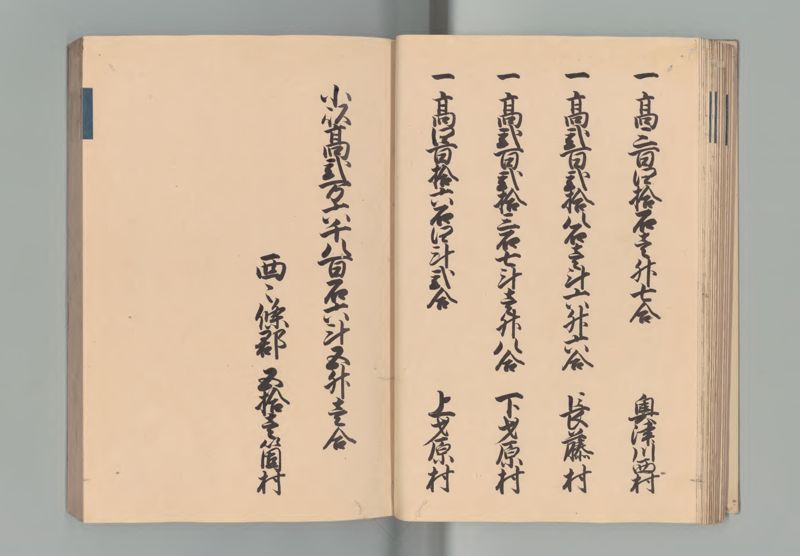 一 高三百四拾石壱升七合 奥津川西村
一 高弐百弐拾八石壱斗六升六合 長藤村
一 高弐百弐拾三石七斗壱升八合 下才原村
一 高四百拾六石四斗弐合 上才原村
小以高弐万六千八百石六斗五升壱合
西々條郡 五拾壱箇村